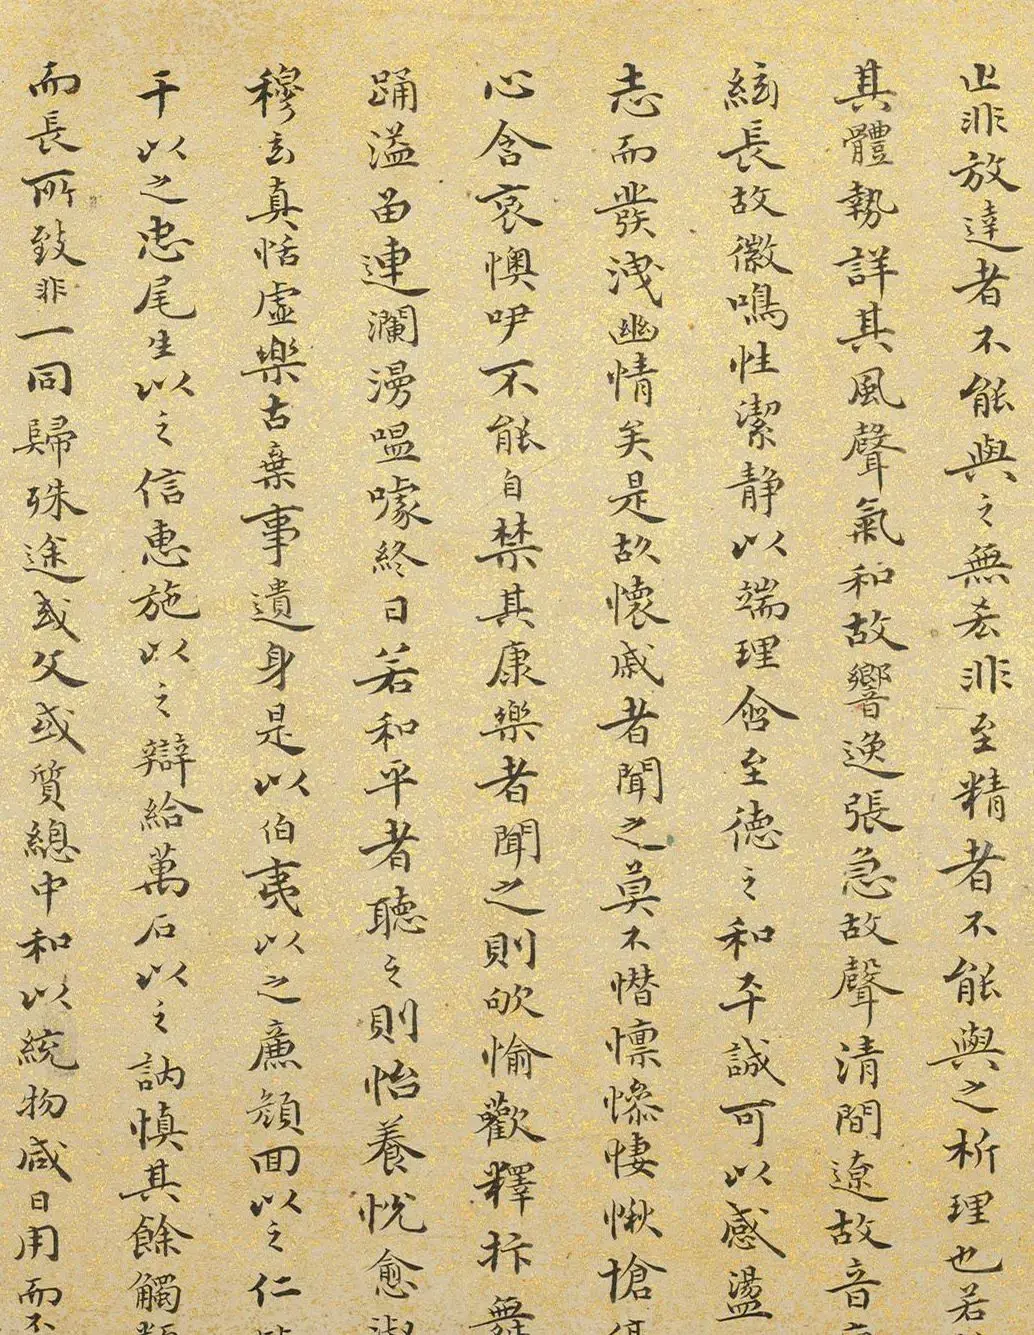 止非放達者不能與之無吝非至精者不能與之析理也若
其體勢詳其風聲氣和故響逸張急故聲清間遼故音
絃長故徽鳴性潔静以端理含至德之和平誠可以感盪
志而發洩幽情矣是故懷戚者聞之莫不憯懍慘悽愀愴
心含哀懊咿不能自禁其康樂者聞之則欨愉歡釋抃舞
踊溢留連瀾漫嗢噱終日若和平者聽之則怡養悅愈淑
穆玄真恬虛樂古棄事遺身是以伯夷以之廉顏回以之仁
干以之忠尾生以之信惠施以之辯給萬石以之訥慎其餘觸類
而長所致非一同歸殊途或文或質總中和以統物咸日用而不